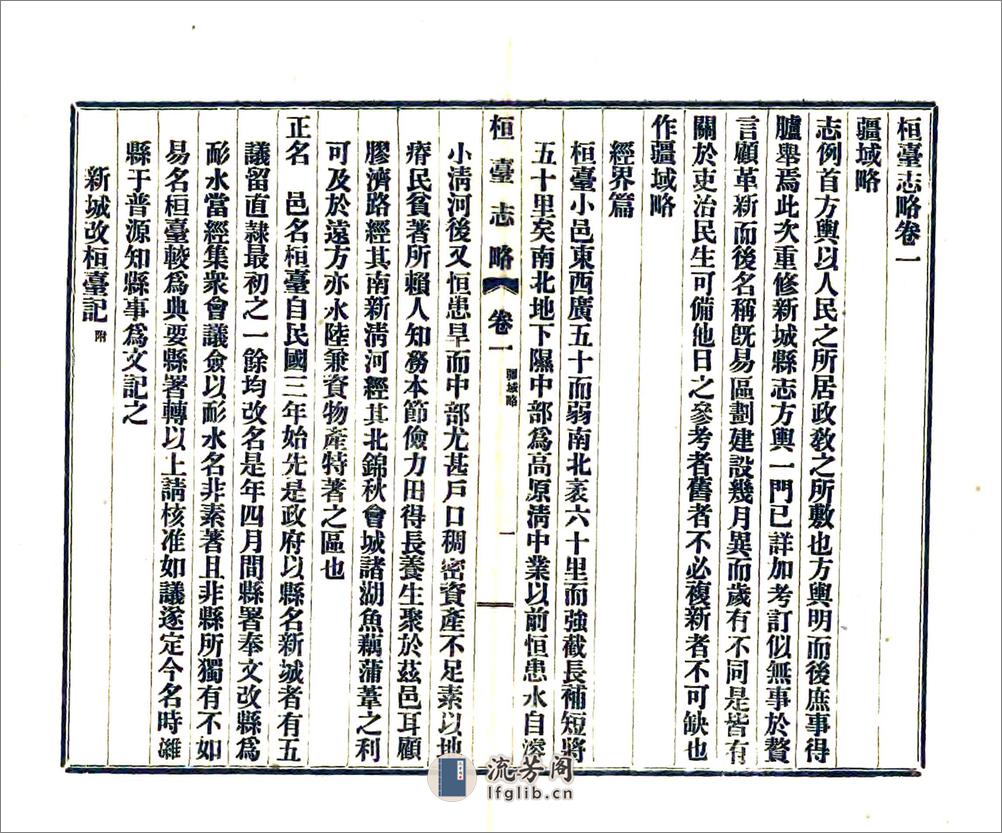 桓臺志略卷一
疆域略
志例首方輿以人民之所居政敎之所敷也方輿明而後庶事得
臚舉焉此次重修新城縣志方輿一門已詳加考訂似無事於贅
言顧革新而後名稱旣易區劃建設幾月異而歲有不同是皆有
關於吏治民生可備他日之參考者舊者不必複新者不可缺也
作疆域略
經界篇
桓臺小邑東西廣五十而弱南北袤六十里而強截長補短將
五十里矣南北地下隰中部爲高原淸中業以前恒患水自濬
桓臺志略
卷一
疆域略
一
小淸河後又恒患旱而中部尤甚戶口稠密資產不足素以地
瘠民貧著所賴人知務本節儉力田得長養生聚於茲邑耳顧
膠濟路經其南新淸河經其北錦秋會城諸湖魚藕蒲葦之利
可及於遠方亦水陸兼資物產特著之區也
正名 邑名桓臺自民國三年始先是政府以縣名新城者有五
議留直隷最初之一餘均改名是年四月間縣署奉文改縣爲
耏水當經集衆會議僉以耏水名非素著且非縣所獨有不如
易名桓臺較爲典要縣署轉以上請核准如議遂定今名時濰
縣于普源知縣事爲文記之
新城改桓臺記 附
流芳阁
lfglib.cn